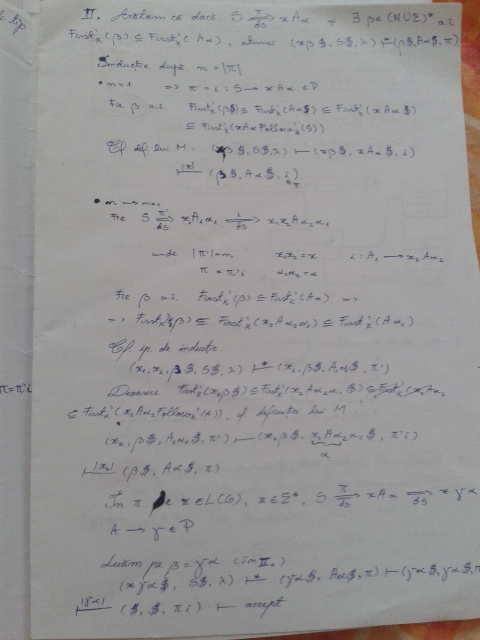 II. Arătăm că dacă S ⇒ xAα și ∃ β∈(N∪Σ)* a.î.
First'k(β) ⊆ First'k(Aα), atunci (xβ$, S$, λ) ⊢* (β$, Aα$, π)
Inducție după n = |π|
• n=1 ⇒ π = i : S → xAα ∈ P
Fie β a.î. First'k(β$) ⊆ First'k(Aα$) ⊆ First'k(xAα$)
⊆ First'k(xAα Follow'k(S))
Cf. def. lui M: (xβ$, S$, λ) ⊢ (xβ$, xAα$, i)
⊢|x| (β$, Aα$, i)
π
• n → n+1
Fie S π'⇒ds x₁A₁α₁ i⇒ds x₁x₂Aα₂α₁
unde |π'|=n x₁x₂=x i: A₁ → x₂Aα₂
π = π'i α₂α₁=α
Fie β a.î. First'k(β) ⊆ First'k(Aα) ⇒
⇒ First'k(x₂β) ⊆ First'k(x₂Aα₂α₁) ⊆ First'k(A₁α₁)
Cf ip. de inducție:
(x₁x₂β$, S$, λ) ⊢* (x₂β$, A₁α₁$, π')
Deoarece First'k(x₂β$) ⊆ First'k(x₂Aα₂α₁$) ⊆ First'k(x₂Aα₂
⊆ First'k(x₂Aα₂ Follow'k(A)), cf definiției lui M
(x₂β$, A₁α₁$, π') ⊢ (x₂β$, x₂Aα₂α₁$, π'i)
α
⊢|x₂| (β$, Aα$, π)
π=π'i
În π z∈L(G), z∈Σ*, S π⇒ds xAα ⇒ds xγα
A → γ ∈ P
Luăm pe β = γα (în II.)
(xγα$, S$, λ) ⊢* (γα$, Aα$, π) ⊢ (γα$, γα$, πi)
⊢|γα| ($, $, πi) ⊢ accept